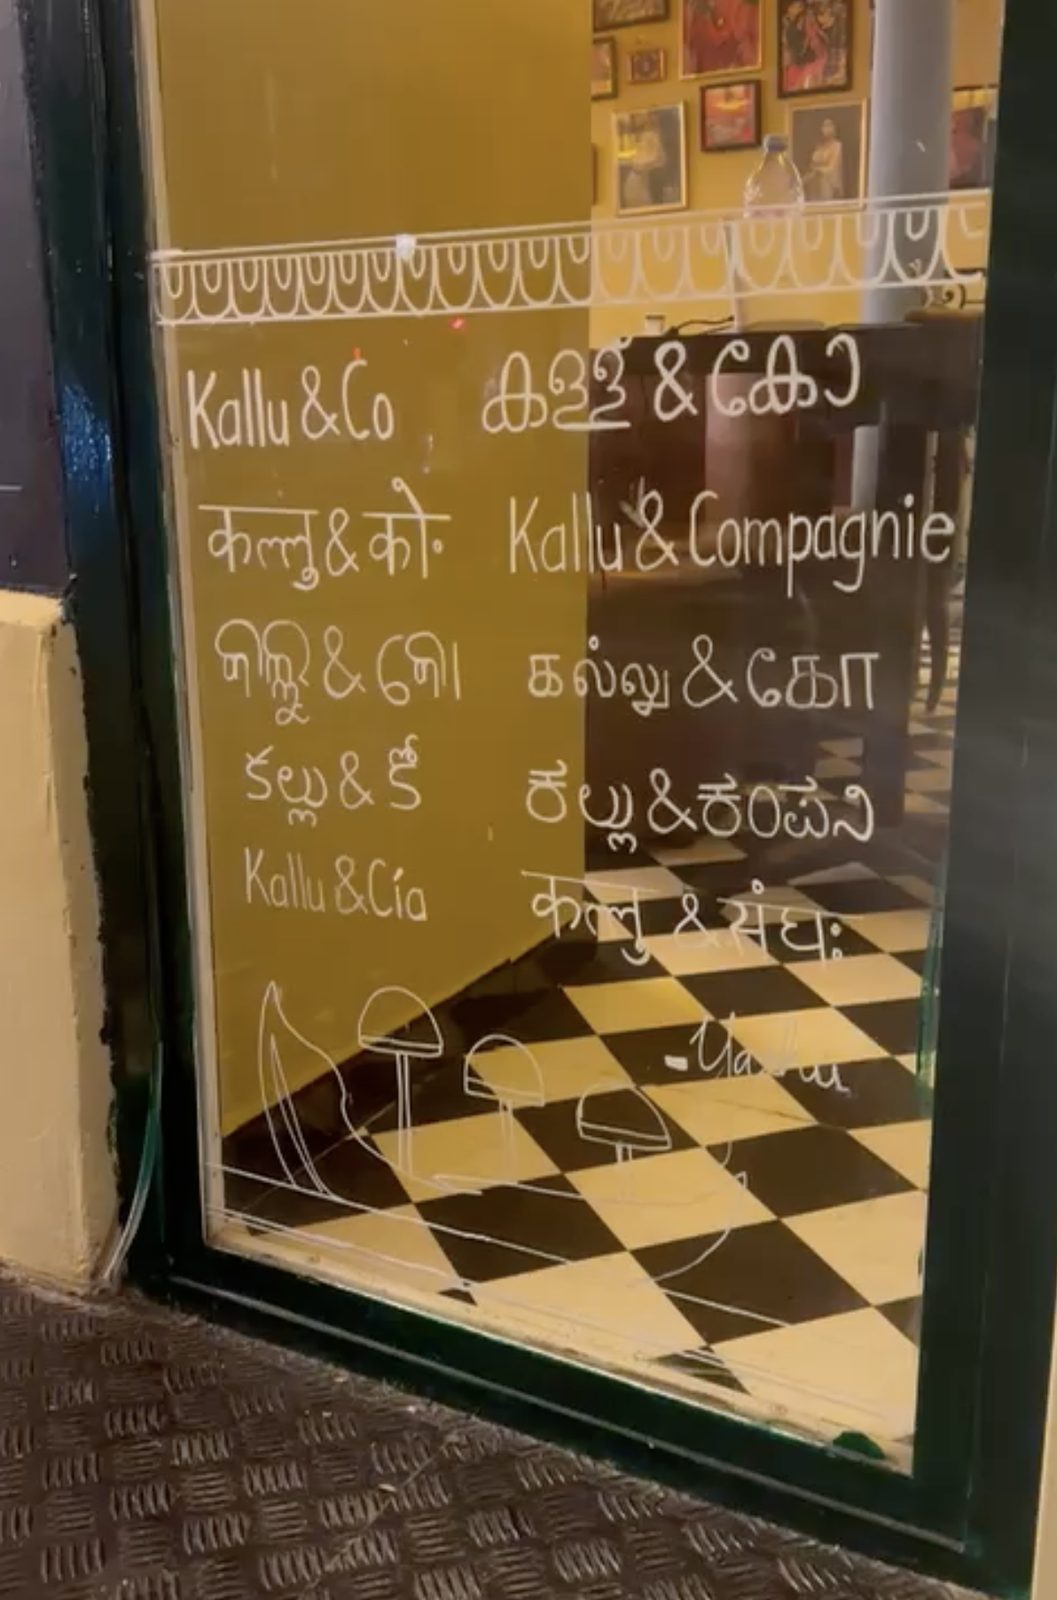 Kallu & Co
കള്ള് & കോ
कल्लु & को॰
Kallu & Compagnie
କଲ୍ଲୁ & କୋ
கல்லு & கோ
కల్లు & కో
ಕಲ್ಲು & ಕಂಪನಿ
Kallu & Cía
कल्लु & संघः